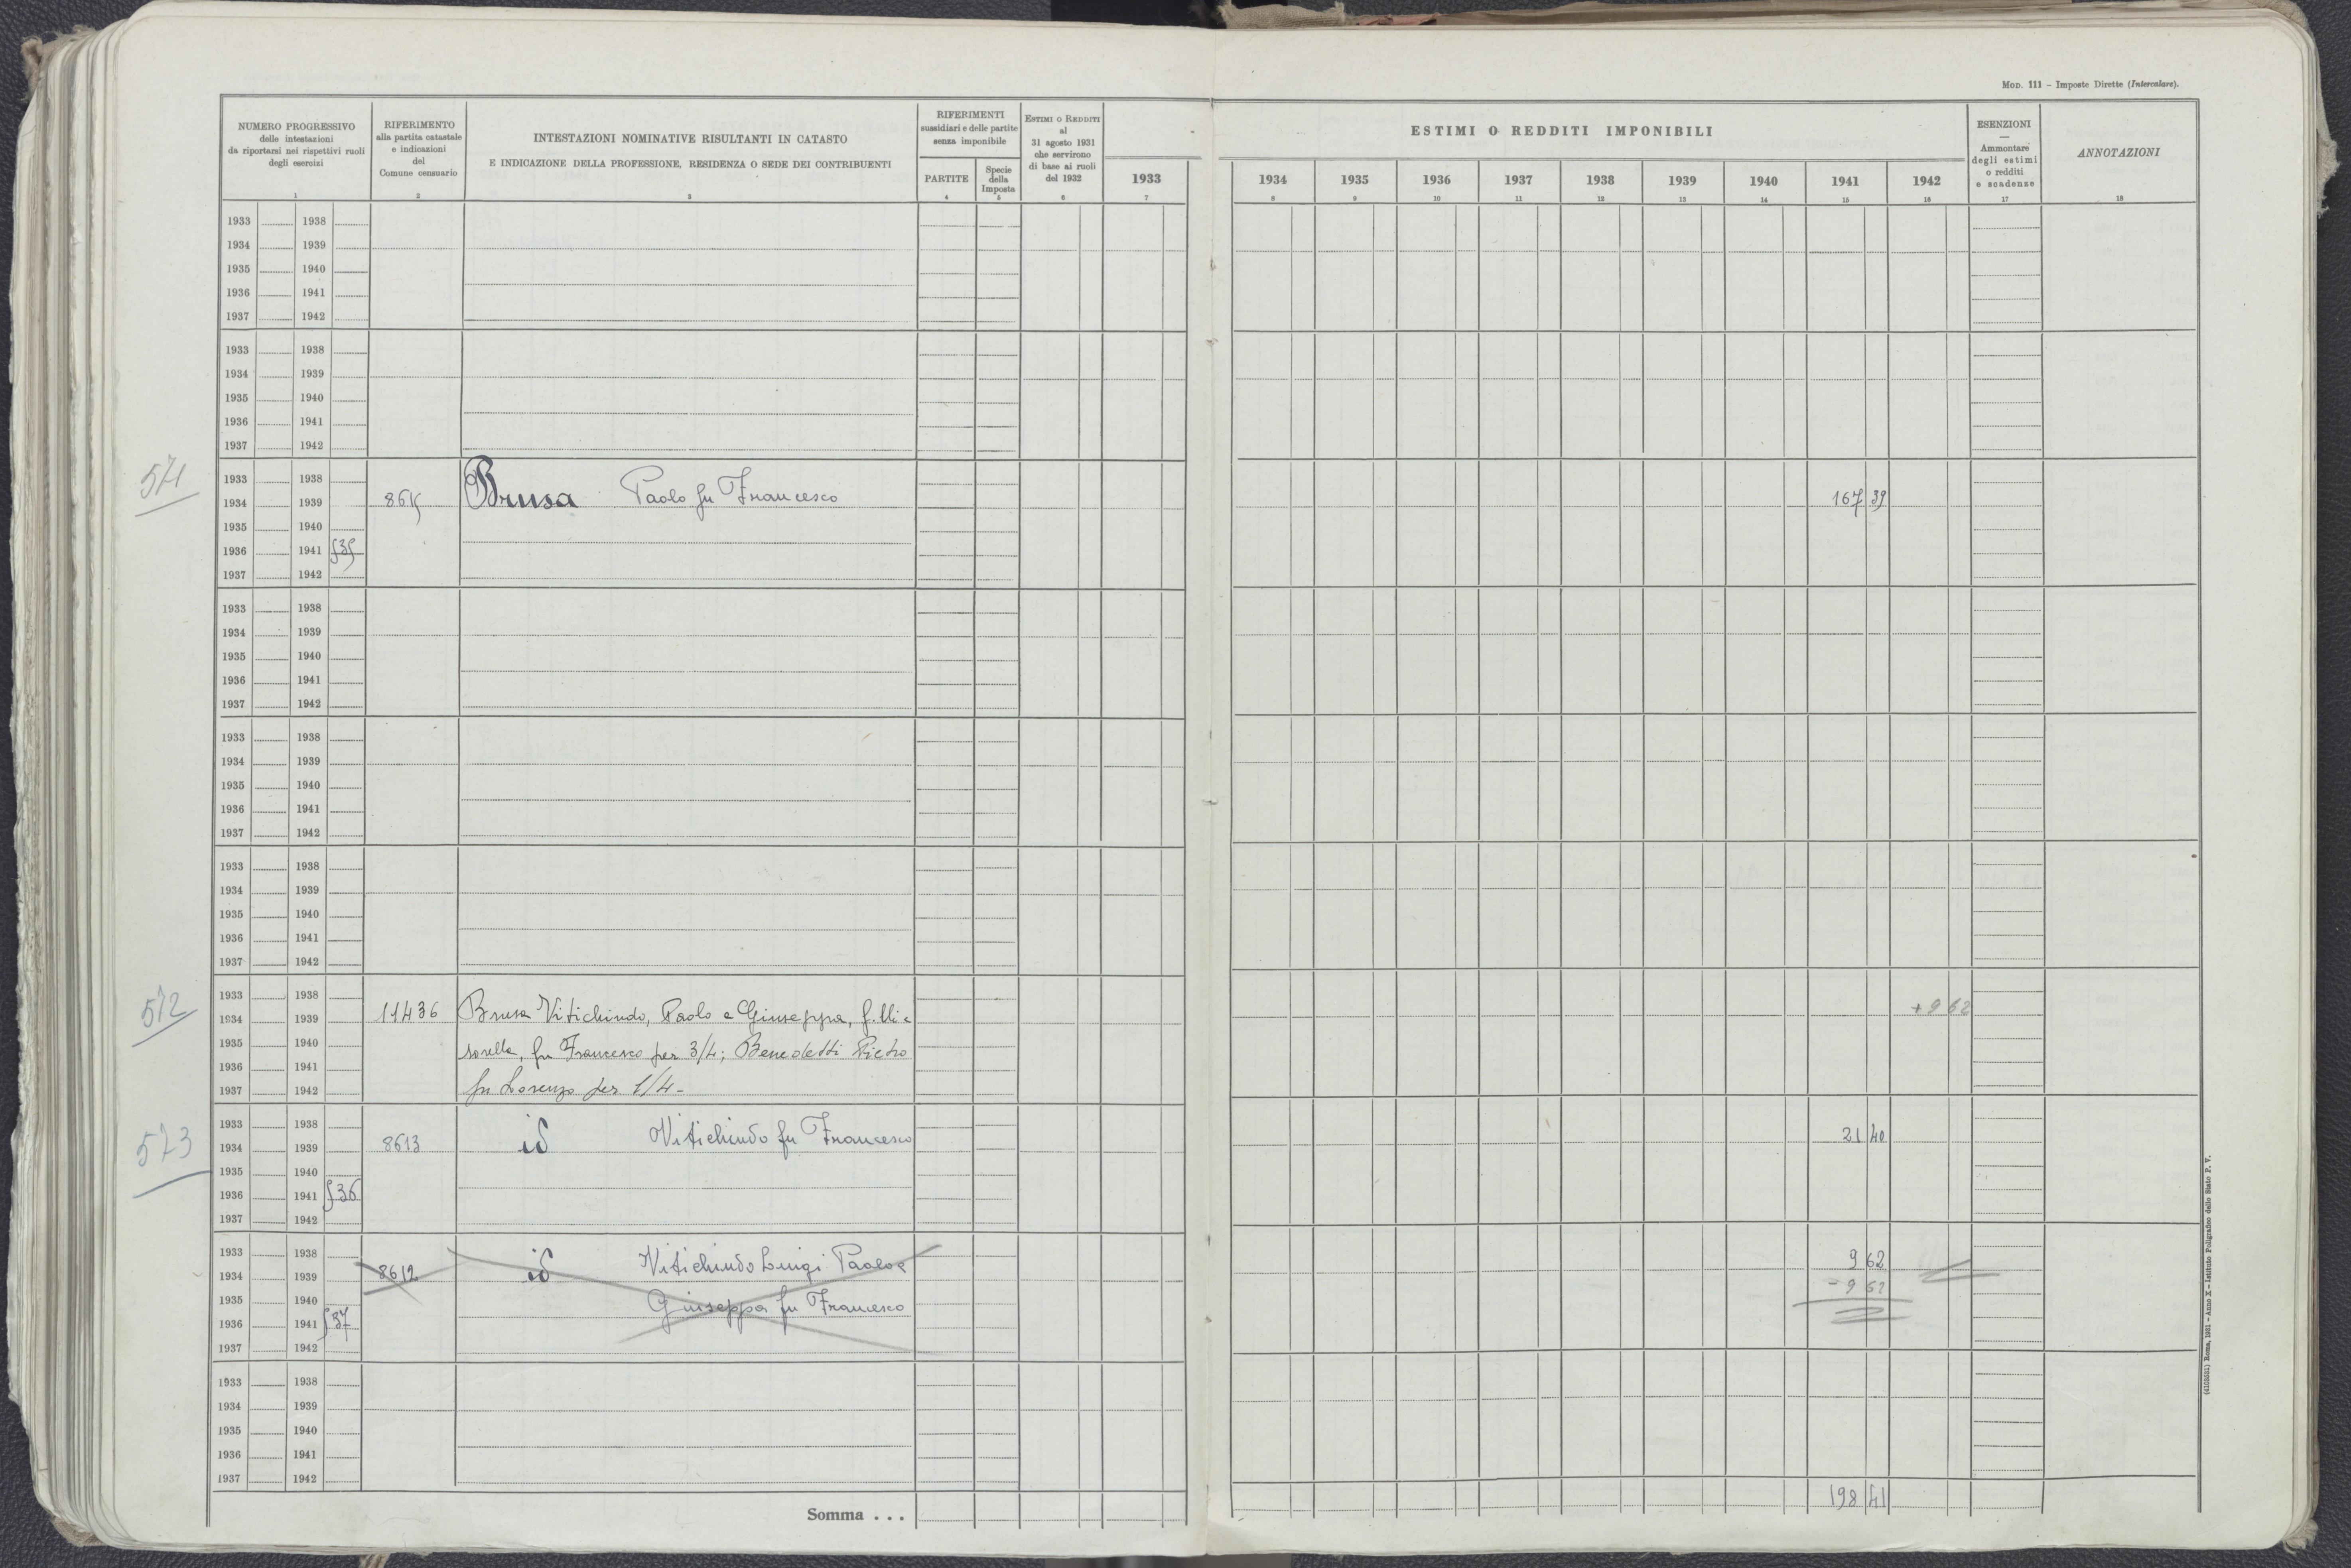 MOD. 111 - Imposte Dirette (Intercalare).
NUMERO PROGRESSIVO
delle intestazioni
da riportarsi nei rispettivi ruoli
degli esercizi
1
RIFERIMENTO
alla partita catastale
e indicazioni
del
Comune censuario
2
INTESTAZIONI NOMINATIVE RISULTANTI IN CATASTO
E INDICAZIONE DELLA PROFESSIONE, RESIDENZA O SEDE DEI CONTRIBUENTI
3
RIFERIMENTI
sussidiari e delle partite
senza imponibile
PARTITE
4
Specie
della
Imposta
5
ESTIMI O REDDITI
al
31 agosto 1931
che servirono
di base ai ruoli
del 1932
6
ESTIMI O REDDITI IMPONIBILI
1933 1934 1935 1936 1937 1938 1939 1940 1941 1942
7 8 9 10 11 12 13 14 15 16
ESENZIONI
—
Ammontare
degli estimi
o redditi
e scadenze
17
ANNOTAZIONI
18
1933 1938
1934 1939
1935 1940
1936 1941
1937 1942
1933 1938
1934 1939
1935 1940
1936 1941
1937 1942
571
1933 1938
1934 1939 8615 Brusa Paolo fu Francesco 167 39
1935 1940
1936 1941 535
1937 1942
1933 1938
1934 1939
1935 1940
1936 1941
1937 1942
1933 1938
1934 1939
1935 1940
1936 1941
1937 1942
1933 1938
1934 1939
1935 1940
1936 1941
1937 1942
572
1933 1938
1934 1939 11436 Brusa Vitichindo, Paolo e Giuseppa, f.lli e +9 62
1935 1940 sorella, fu Francesco per 3/4; Benedetti Pietro
1936 1941
1937 1942 fu Lorenzo per 1/4-
573
1933 1938
1934 1939 8613 id Vitichindo fu Francesco 21 40
1935 1940
1936 1941 536
1937 1942
1933 1938
1934 1939 8612 id Vitichindo Luigi Paolo e 9 62
1935 1940 Giuseppa fu Francesco -9 62
1936 1941 537
1937 1942
1933 1938
1934 1939
1935 1940
1936 1941
1937 1942
Somma . . . 198 41
(4103551) Roma, 1931 - Anno X - Istituto Poligrafico dello Stato P. V.